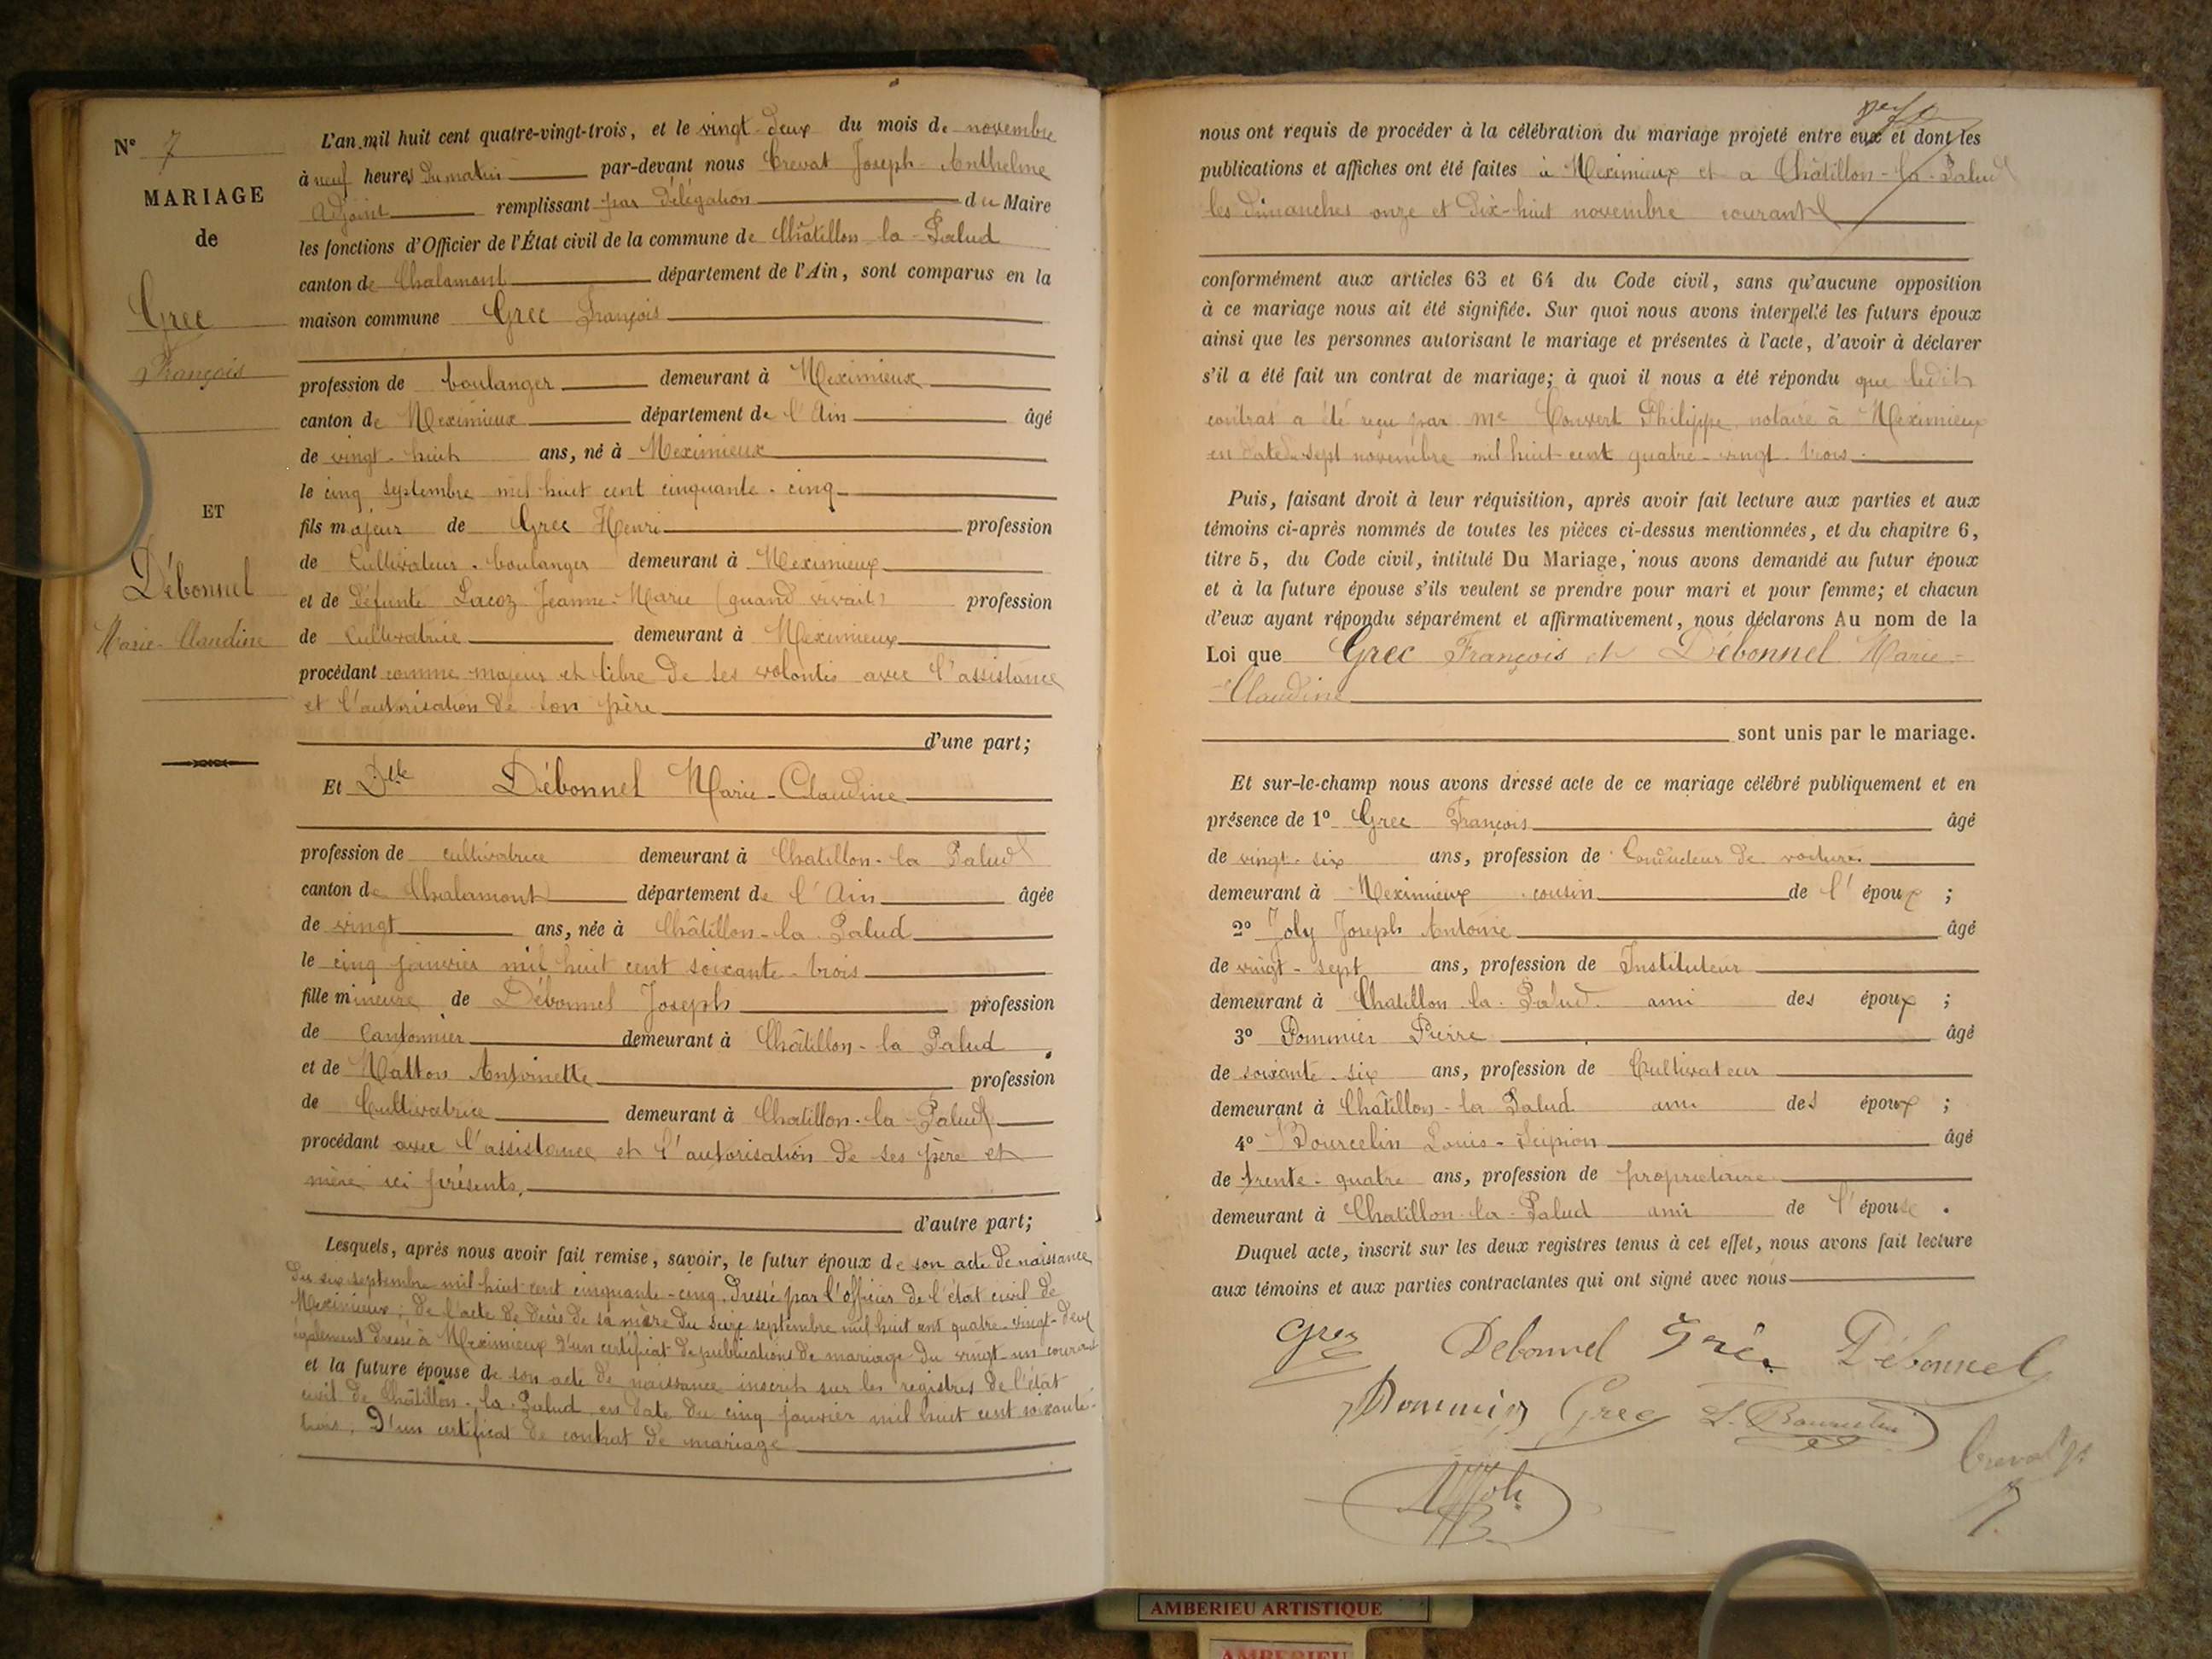 N° 7
MARIAGE
de
Grec
François
ET
Débonnel
Marie-Claudine
L'an mil huit cent quatre-vingt-trois, et le vingt-deux du mois de novembre
à neuf heures du matin par-devant nous Crevat Joseph-Anthelme
Adjoint remplissant par délégation du Maire
les fonctions d'Officier de l'État civil de la commune de Châtillon-la-Palud
canton de Chalamont département de l'Ain, sont comparus en la
maison commune Grec François
profession de boulanger demeurant à Meximieux
canton de Meximieux département de l'Ain âgé
de vingt-huit ans, né à Meximieux
le cinq septembre mil huit cent cinquante-cinq
fils majeur de Grec Henri profession
de Cultivateur-boulanger demeurant à Meximieux
et de défunte Lacoz Jeanne-Marie (quand vivait) profession
de Cultivatrice demeurant à Meximieux
procédant comme majeur et libre de ses volontés avec l'assistance
et l'autorisation de son père
d'une part;
Et Dlle Débonnel Marie-Claudine
profession de cultivatrice demeurant à Chatillon-la Palud
canton de Chalamont département de l'Ain âgée
de vingt ans, née à Châtillon-la-Palud
le cinq janvier mil huit cent soixante-trois
fille mineure de Débonnel Joseph profession
de Cantonnier demeurant à Châtillon-la Palud
et de Matton Antoinette profession
de Cultivatrice demeurant à Chatillon-la-Palud
procédant avec l'assistance et l'autorisation de ses père et
mère ici présents.
d'autre part;
Lesquels, après nous avoir fait remise, savoir, le futur époux de son acte de naissance
du six septembre mil huit cent cinquante-cinq, dressé par l'officier de l'état civil de
Meximieux; de l'acte de décès de sa mère du seize septembre mil huit cent quatre-vingt-deux
également dressé à Meximieux d'un certificat de publications de mariage du vingt-un courant
et la future épouse de son acte de naissance inscrit sur les registres de l'état
civil de Châtillon-la-Palud en date du cinq janvier mil huit cent soixante-
trois, D'un certificat de contrat de mariage
nous ont requis de procéder à la célébration du mariage projeté entre eux et dont les
publications et affiches ont été faites à Meximieux et à Châtillon-la-Palud
les dimanches onze et dix-huit novembre courant
conformément aux articles 63 et 64 du Code civil, sans qu'aucune opposition
à ce mariage nous ait été signifiée. Sur quoi nous avons interpellé les futurs époux
ainsi que les personnes autorisant le mariage et présentes à l'acte, d'avoir à déclarer
s'il a été fait un contrat de mariage; à quoi il nous a été répondu que ledit
contrat a été reçu par Me Convert Philippe, notaire à Meximieux
en date du sept novembre mil huit-cent quatre-vingt-trois.
Puis, faisant droit à leur réquisition, après avoir fait lecture aux parties et aux
témoins ci-après nommés de toutes les pièces ci-dessus mentionnées, et du chapitre 6,
titre 5, du Code civil, intitulé Du Mariage, nous avons demandé au futur époux
et à la future épouse s'ils veulent se prendre pour mari et pour femme; et chacun
d'eux ayant répondu séparément et affirmativement, nous déclarons Au nom de la
Loi que Grec François et Débonnel Marie-
-Claudine
sont unis par le mariage.
Et sur-le-champ nous avons dressé acte de ce mariage célébré publiquement et en
présence de 1° Grec François âgé
de vingt-six ans, profession de Conducteur de voitures
demeurant à Meximieux cousin de l'époux ;
2° Joly Joseph Antoine âgé
de vingt-sept ans, profession de Instituteur
demeurant à Chatillon-la-Palud ami des époux ;
3° Pommier Pierre âgé
de soixante-six ans, profession de Cultivateur
demeurant à Châtillon-la Palud ami des époux ;
4° Bourcelin Louis-Scipion âgé
de trente-quatre ans, profession de propriétaire
demeurant à Chatillon-la-Palud ami de l'épouse .
Duquel acte, inscrit sur les deux registres tenus à cet effet, nous avons fait lecture
aux témoins et aux parties contractantes qui ont signé avec nous
Grec Debonnel Grec Débonnel
Pommier Grec L. Bourcelin
Crevat
Joly
AMBERIEU ARTISTIQUE
AMBERIEU